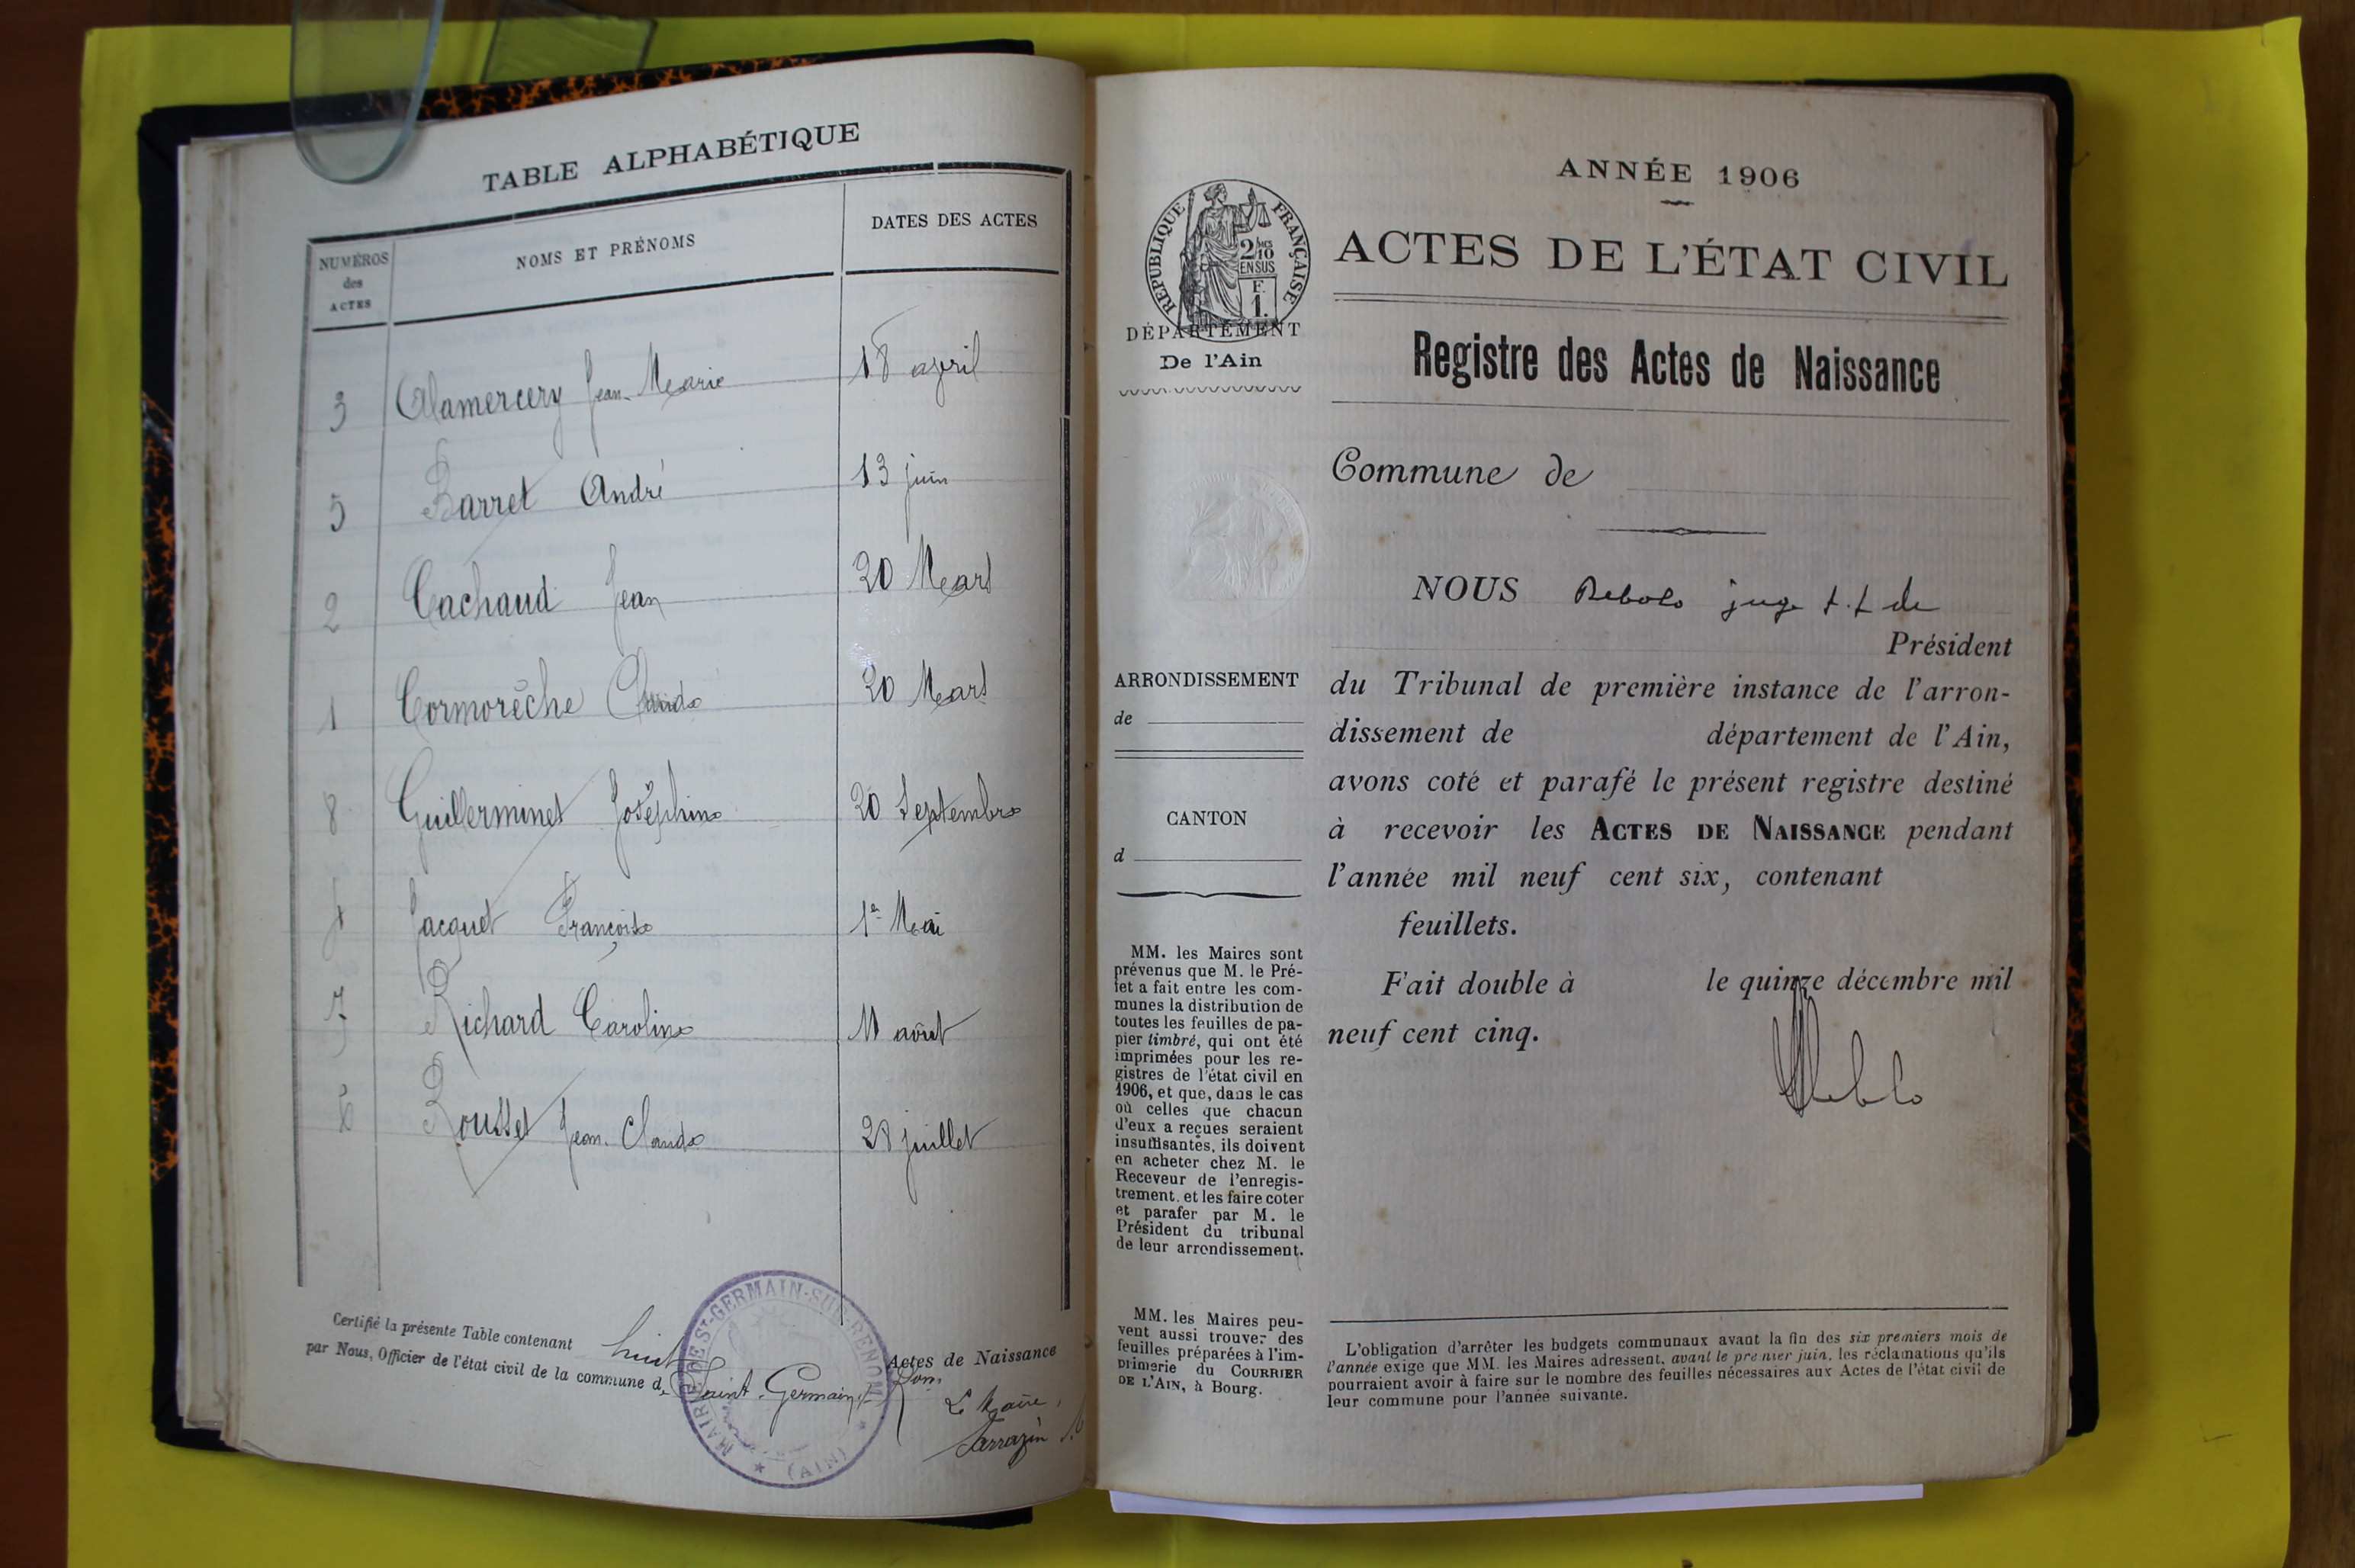 TABLE ALPHABÉTIQUE
NUMÉROS
des
ACTES
NOMS ET PRÉNOMS
DATES DES ACTES
3 Alamercery Jean-Marie 18 avril
5 Barret André 13 juin
2 Cachaud Jean 20 Mars
1 Cormorèche Claude 20 Mars
8 Guillerminet Joséphine 20 Septembre
4 Jacquet 1er Mai
7 Richard Caroline 11 août
6 Rousset Jean-Claude 28 juillet
Certifié la présente Table contenant huit Actes de Naissance
par Nous, Officier de l'état civil de la commune de Saint-Germain
Le Maire,
Sarrazin
MAIRIE DE ST-GERMAIN-SUR-RENON
(AIN)
ANNÉE 1906
ACTES DE L'ÉTAT CIVIL
RÉPUBLIQUE FRANÇAISE
2/10
EN SUS
F.
1.
DÉPARTEMENT
De l'Ain
Registre des Actes de Naissance
Commune de
NOUS juge
Président
du Tribunal de première instance de l'arron-
dissement de département de l'Ain,
avons coté et parafé le présent registre destiné
à recevoir les ACTES DE NAISSANCE pendant
l'année mil neuf cent six, contenant
feuillets.
Fait double à le quinze décembre mil
neuf cent cinq.
ARRONDISSEMENT
de
CANTON
d
MM. les Maires sont
prévenus que M. le Pré-
fet a fait entre les com-
munes la distribution de
toutes les feuilles de pa-
pier timbré, qui ont été
imprimées pour les re-
gistres de l'état civil en
1906, et que, dans le cas
où celles que chacun
d'eux a reçues seraient
insuffisantes, ils doivent
en acheter chez M. le
Receveur de l'enregis-
trement. et les faire coter
et parafer par M. le
Président du tribunal
de leur arrondissement.
MM. les Maires peu-
vent aussi trouver des
feuilles préparées à l'im-
primerie du COURRIER
DE L'AIN, à Bourg.
L'obligation d'arrêter les budgets communaux avant la fin des six premiers mois de
l'année exige que MM. les Maires adressent, avant le premier juin, les réclamations qu'ils
pourraient avoir à faire sur le nombre des feuilles nécessaires aux Actes de l'état civil de
leur commune pour l'année suivante.